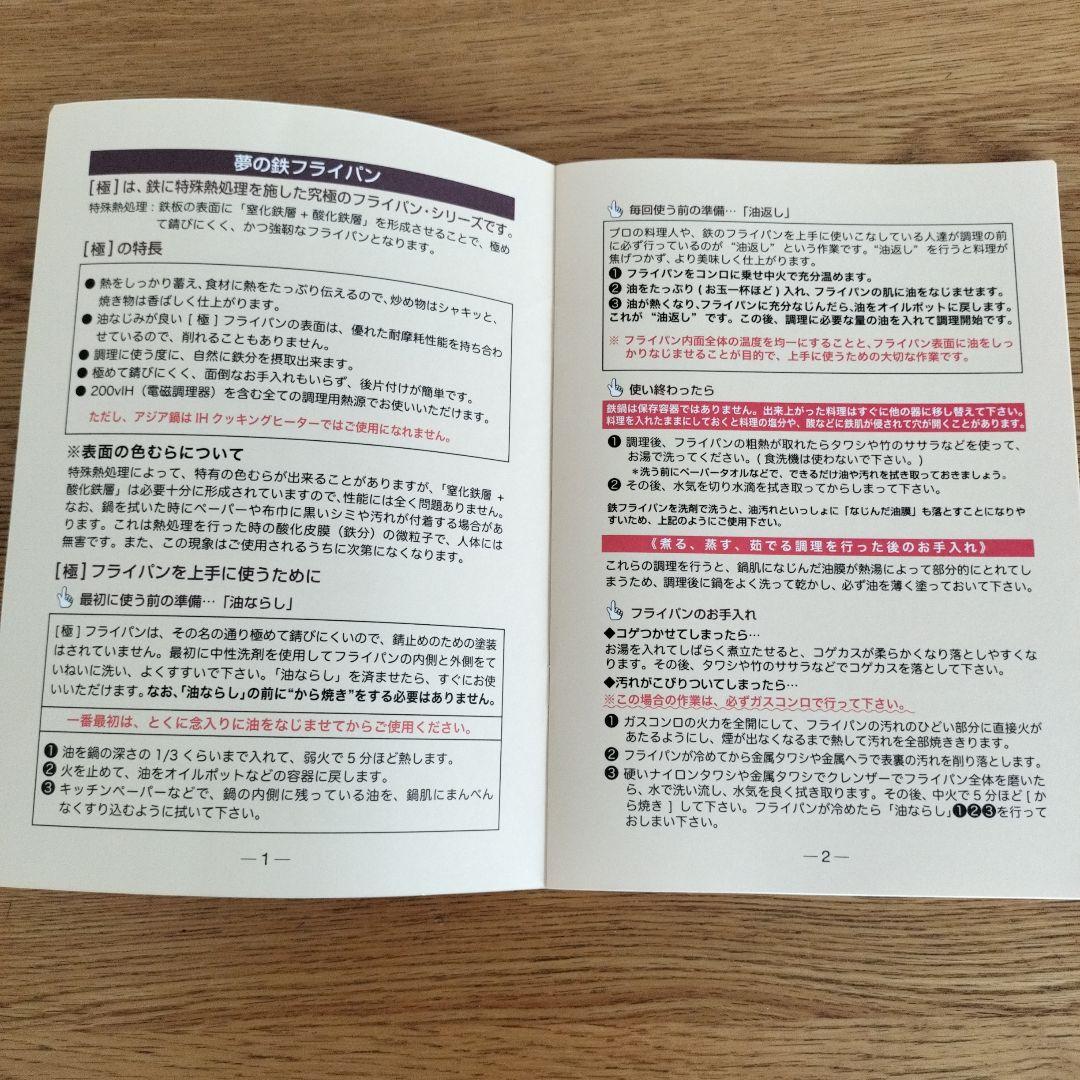 夢の鉄フライパン
[極]は、鉄に特殊熱処理を施した究極のフライパン・シリーズです。
特殊熱処理：鉄板の表面に「窒化鉄層＋酸化鉄層」を形成させることで、極め
て錆びにくく、かつ強靭なフライパンとなります。
[極]の特長
● 熱をしっかり蓄え、食材に熱をたっぷり伝えるので、炒め物はシャキッと、
焼き物は香ばしく仕上がります。
● 油なじみが良い[極]フライパンの表面は、優れた耐摩耗性能を持ち合わ
せているので、削れることもありません。
● 調理に使う度に、自然に鉄分を摂取出来ます。
● 極めて錆びにくく、面倒なお手入れもいらず、後片付けが簡単です。
● 200vIH（電磁調理器）を含む全ての調理用熱源でお使いいただけます。
ただし、アジア鍋はIHクッキングヒーターではご使用になれません。
※表面の色むらについて
特殊熱処理によって、特有の色むらが出来ることがありますが、「窒化鉄層＋
酸化鉄層」は必要十分に形成されていますので、性能には全く問題ありません。
なお、鍋を拭いた時にペーパーや布巾に黒いシミや汚れが付着する場合があ
ります。これは熱処理を行った時の酸化皮膜（鉄分）の微粒子で、人体には
無害です。また、この現象はご使用されるうちに次第になくなります。
[極]フライパンを上手に使うために
最初に使う前の準備…「油ならし」
[極]フライパンは、その名の通り極めて錆びにくいので、錆止めのための塗装
はされていません。最初に中性洗剤を使用してフライパンの内側と外側をて
いねいに洗い、よくすすいで下さい。「油ならし」を済ませたら、すぐにお使
いいただけます。なお、「油ならし」の前に“から焼き”をする必要はありません。
一番最初は、とくに念入りに油をなじませてからご使用ください。
❶ 油を鍋の深さの1/3くらいまで入れて、弱火で5分ほど熱します。
❷ 火を止めて、油をオイルポットなどの容器に戻します。
❸ キッチンペーパーなどで、鍋の内側に残っている油を、鍋肌にまんべん
なくすり込むように拭いて下さい。
—1—
毎回使う前の準備…「油返し」
プロの料理人や、鉄のフライパンを上手に使いこなしている人達が調理の前
に必ず行っているのが“油返し”という作業です。“油返し”を行うと料理が
焦げつかず、より美味しく仕上がります。
❶ フライパンをコンロに乗せ中火で充分温めます。
❷ 油をたっぷり（お玉一杯ほど）入れ、フライパンの肌に油をなじませます。
❸ 油が熱くなり、フライパンに充分なじんだら、油をオイルポットに戻します。
これが“油返し”です。この後、調理に必要な量の油を入れて調理開始です。
※ フライパン内面全体の温度を均一にすることと、フライパン表面に油をしっ
かりなじませることが目的で、上手に使うための大切な作業です。
使い終わったら
鉄鍋は保存容器ではありません。出来上がった料理はすぐに他の器に移し替えて下さい。
料理を入れたままにしておくと料理の塩分や、酸などに鉄肌が侵されて穴が開くことがあります。
❶ 調理後、フライパンの粗熱が取れたらタワシや竹のササラなどを使って、
お湯で洗ってください。（食洗機は使わないで下さい。）
＊洗う前にペーパータオルなどで、できるだけ油や汚れを拭き取っておきましょう。
❷ その後、水気を切り水滴を拭き取ってからしまって下さい。
鉄フライパンを洗剤で洗うと、油汚れといっしょに「なじんだ油膜」も落とすことになりや
すいため、上記のようにご使用下さい。
《煮る、蒸す、茹でる調理を行った後のお手入れ》
これらの調理を行うと、鍋肌になじんだ油膜が熱湯によって部分的にとれてし
まうため、調理後に鍋をよく洗って乾かし、必ず油を薄く塗っておいて下さい。
フライパンのお手入れ
◆コゲつかせてしまったら…
お湯を入れてしばらく煮立たせると、コゲカスが柔らかくなり落としやすくな
ります。その後、タワシや竹のササラなどでコゲカスを落として下さい。
◆汚れがこびりついてしまったら…
※この場合の作業は、必ずガスコンロで行って下さい。
❶ ガスコンロの火力を全開にして、フライパンの汚れのひどい部分に直接火が
あたるようにし、煙が出なくなるまで熱して汚れを全部焼ききります。
❷ フライパンが冷めてから金属タワシや金属ヘラで表裏の汚れを削り落とします。
❸ 硬いナイロンタワシや金属タワシでクレンザーでフライパン全体を磨いた
ら、水で洗い流し、水気を良く拭き取ります。その後、中火で5分ほど[から
焼き]して下さい。フライパンが冷めたら「油ならし」❶❷❸を行って
おしまい下さい。
—2—